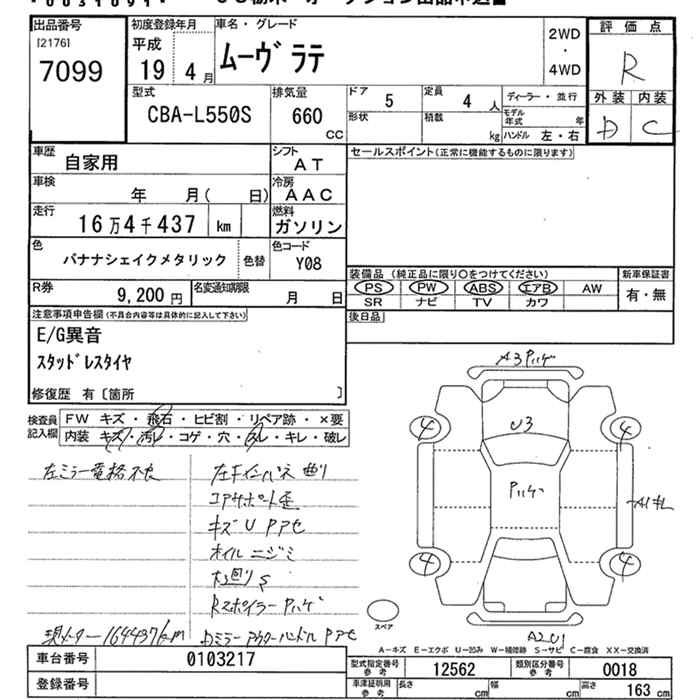 出品番号
[2176]
7099
初度登録年月
平成
19 4月
車名・グレード
ムーヴ ラテ
2WD
・
4WD
評価点
R
外装 内装
D C
型式
CBA-L550S
排気量
660
CC
ドア 5
形状
定員 4 人
積載 kg
ディーラー・並行
モデル年式 年
ハンドル 左・右
車歴 自家用
シフト AT
セールスポイント(正常に機能するものに限ります)
車検 年 月( 日)
冷房 AAC
走行 16万4千437 km
燃料 ガソリン
色 バナナシェイクメタリック 色替
色コード Y08
装備品(純正品に限り○をつけてください)
PS PW ABS エアB AW
SR ナビ TV カワ
新車保証書
有・無
R券 9,200 円
名変通知期限 月 日
後日品
注意事項申告欄(不具合内容等は具体的に記入して下さい)
E/G異音
スタッドレスタイヤ
修復歴 有〔箇所 〕
検査員記入欄
FW キズ・飛石・ヒビ割・リペア跡・×要
内装 キズ・汚レ・コゲ・穴・スレ・キレ・破レ
左ミラー電格不良
現メーター164437km
左Fインパネ曲リ
コアサポート歪
キズU Pアセ
オイルニジミ
下回りS
Rスポイラー Pハゲ
Dミラー アウターハンドル Pアセ
A3 Pハゲ
U3
4 4
Pハゲ
A1キレ
4 4
A2U1
スペア
A-キズ E-エクボ U-凹み W-補修跡 S-サビ C-腐食 XX-交換済
車台番号 0103217
登録番号
型式指定番号 参考 12562
類別区分番号 参考 0018
車庫証明用 参考 長さ cm 幅 cm 高さ 163 cm